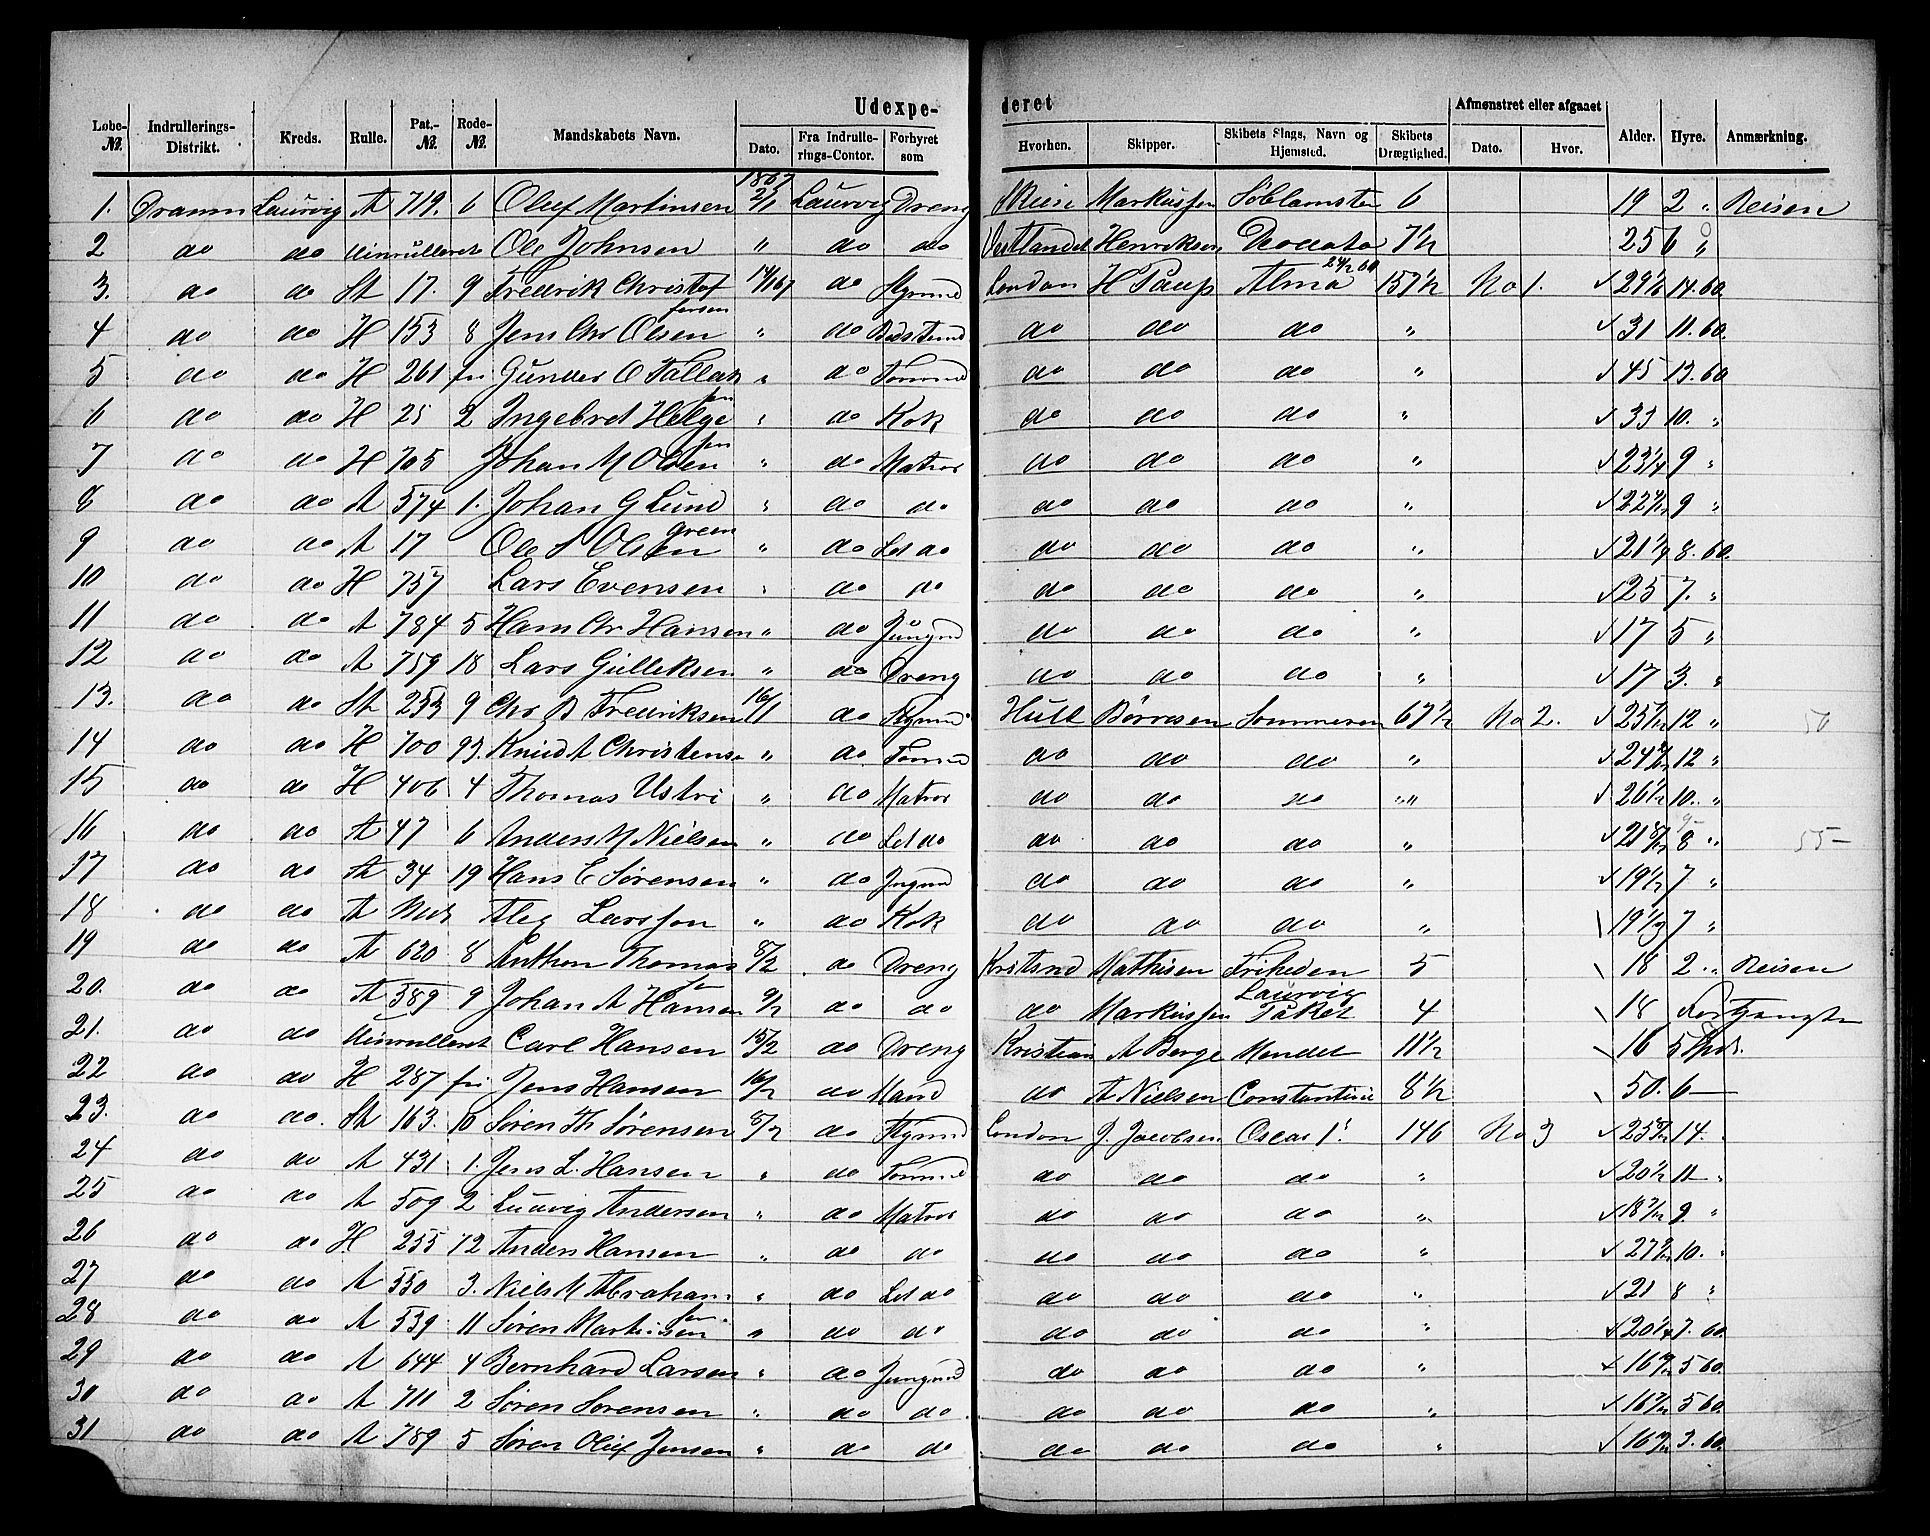 Udexpe- deret
Løbe-№. Indrullerings-Distrikt. Kreds. Rulle. Pat.-№. Rode-№. Mandskabets Navn. Dato. Fra Indrulle-rings-Contor. Forhyret som Hvorhen. Skipper. Skibets Slags, Navn og Hjemsted. Skibets Drægtighed. Afmønstret eller afgaaet Dato. Hvor. Alder. Hyre. Anmærkning.
1867
1. Dramn Laurvig A 719. 6 Oluf Martinsen 2/1 Laurvig Dreng Markussen 6 19 2 " Reisen
2 do do Uinrulleret Ole Johnsen " do do Vestlandet Henriksen 7 1/2 25 6 "
3. do do St 17. 9 Fredrik Christof fersen 14/1 67 do Styrmd London H Paup Alma 157 1/2 No 1. 14.60
4 do do H 153 8 Jens Chr Olsen " do do do do " 31 11.60.
5 do do H 261 fri Gunder O Fallak sen " do Tømmd do do do " 45 13.60
6 do do H 25 2 Ingebret Helge sen " do Kok do do do " 33 10. "
7 do do H 705 Johan M Olsen " do Matros do do do " 23 1/4 9 "
8 do do A 574 1. Johan G Lund " do do do do do " 9 "
9 do do A 17 Ole S Olsen green " do Let do do do do " 21 1/4 8.60.
10 do do H 757 Lars Evensen " do do do do do " 25 7. "
11 do do A 784 5 Hans Chr Hansen " do Jungmd do do do " 17 5 "
12 do do A 759 18 Lars Gulleksen " do Dreng do do do " 17 3. "
13. do do St 253 9 Chr B Fredriksen 16/1 do Styrmd Hull Børresen Sommeren 67 1/2 No 2. 12 " 50
14 do do H 700 93. Knud A Christens. " do Tømmd do do do " 12 "
15 do do H 406 4 Thomas Ustvi " do Matros do do do " 26 1/2 10. "
16 do do A 47 6 Anders M Nielsen " do Let do do do do " 8 " 55-
17 do do A 34 19 Hans E Sørensen " do Jngmd do do do " 19 1/2 7 "
18 do do A Alex Larssen " do Kok do do do " 7 "
19 do do A 620 8 Anthon Thomas sen 8/2 do Dreng Kristsnd Mathisen Friheden 5 18 2 " Reisen
20. do do A 389 9 Johan A Hansen 9/2 do do do Markussen Laurvig Paket 4 18
21. do do Uinrulleret Carl Hansen 15/2 do Dreng Kristian A Berge Mandel 11 1/2 16 5 Spd.
22 do do H 287 fri Jens Hansen 16/2 do Mand do A Nielsen Constantin 8 1/2 50. 6 —
23. do do. St 163. 10 Søren Th Sørensen 8/2 do Styrmd London J. Jacobsen Oscar 1' 146 No 3 14.
24 do do A 431 1. Jens L. Hansen " do Tømmd do do do " 20 1/2 11 "
25 do do A 509 2 Ludvig Andersen " do Matros do do do " 9. "
26 do do H 255 72 Anders Hansen " do do do do do " 10. "
27 do do A 550 3. Niels M Abraham sen. " do Let do do do do " 21 8 "
28 do do A 539 11 Søren Martinsen " do do do do do " 20 1/4 7.60
29 do do A 644 4 Bernhard Larsen " do Jungmd do do do " 5 60
30 do do A 711 2 Søren Sørensen " do do do do do " 5 60.
31 do do A 789 5 Søren Oluf Jensen " do do do do do " 3.60